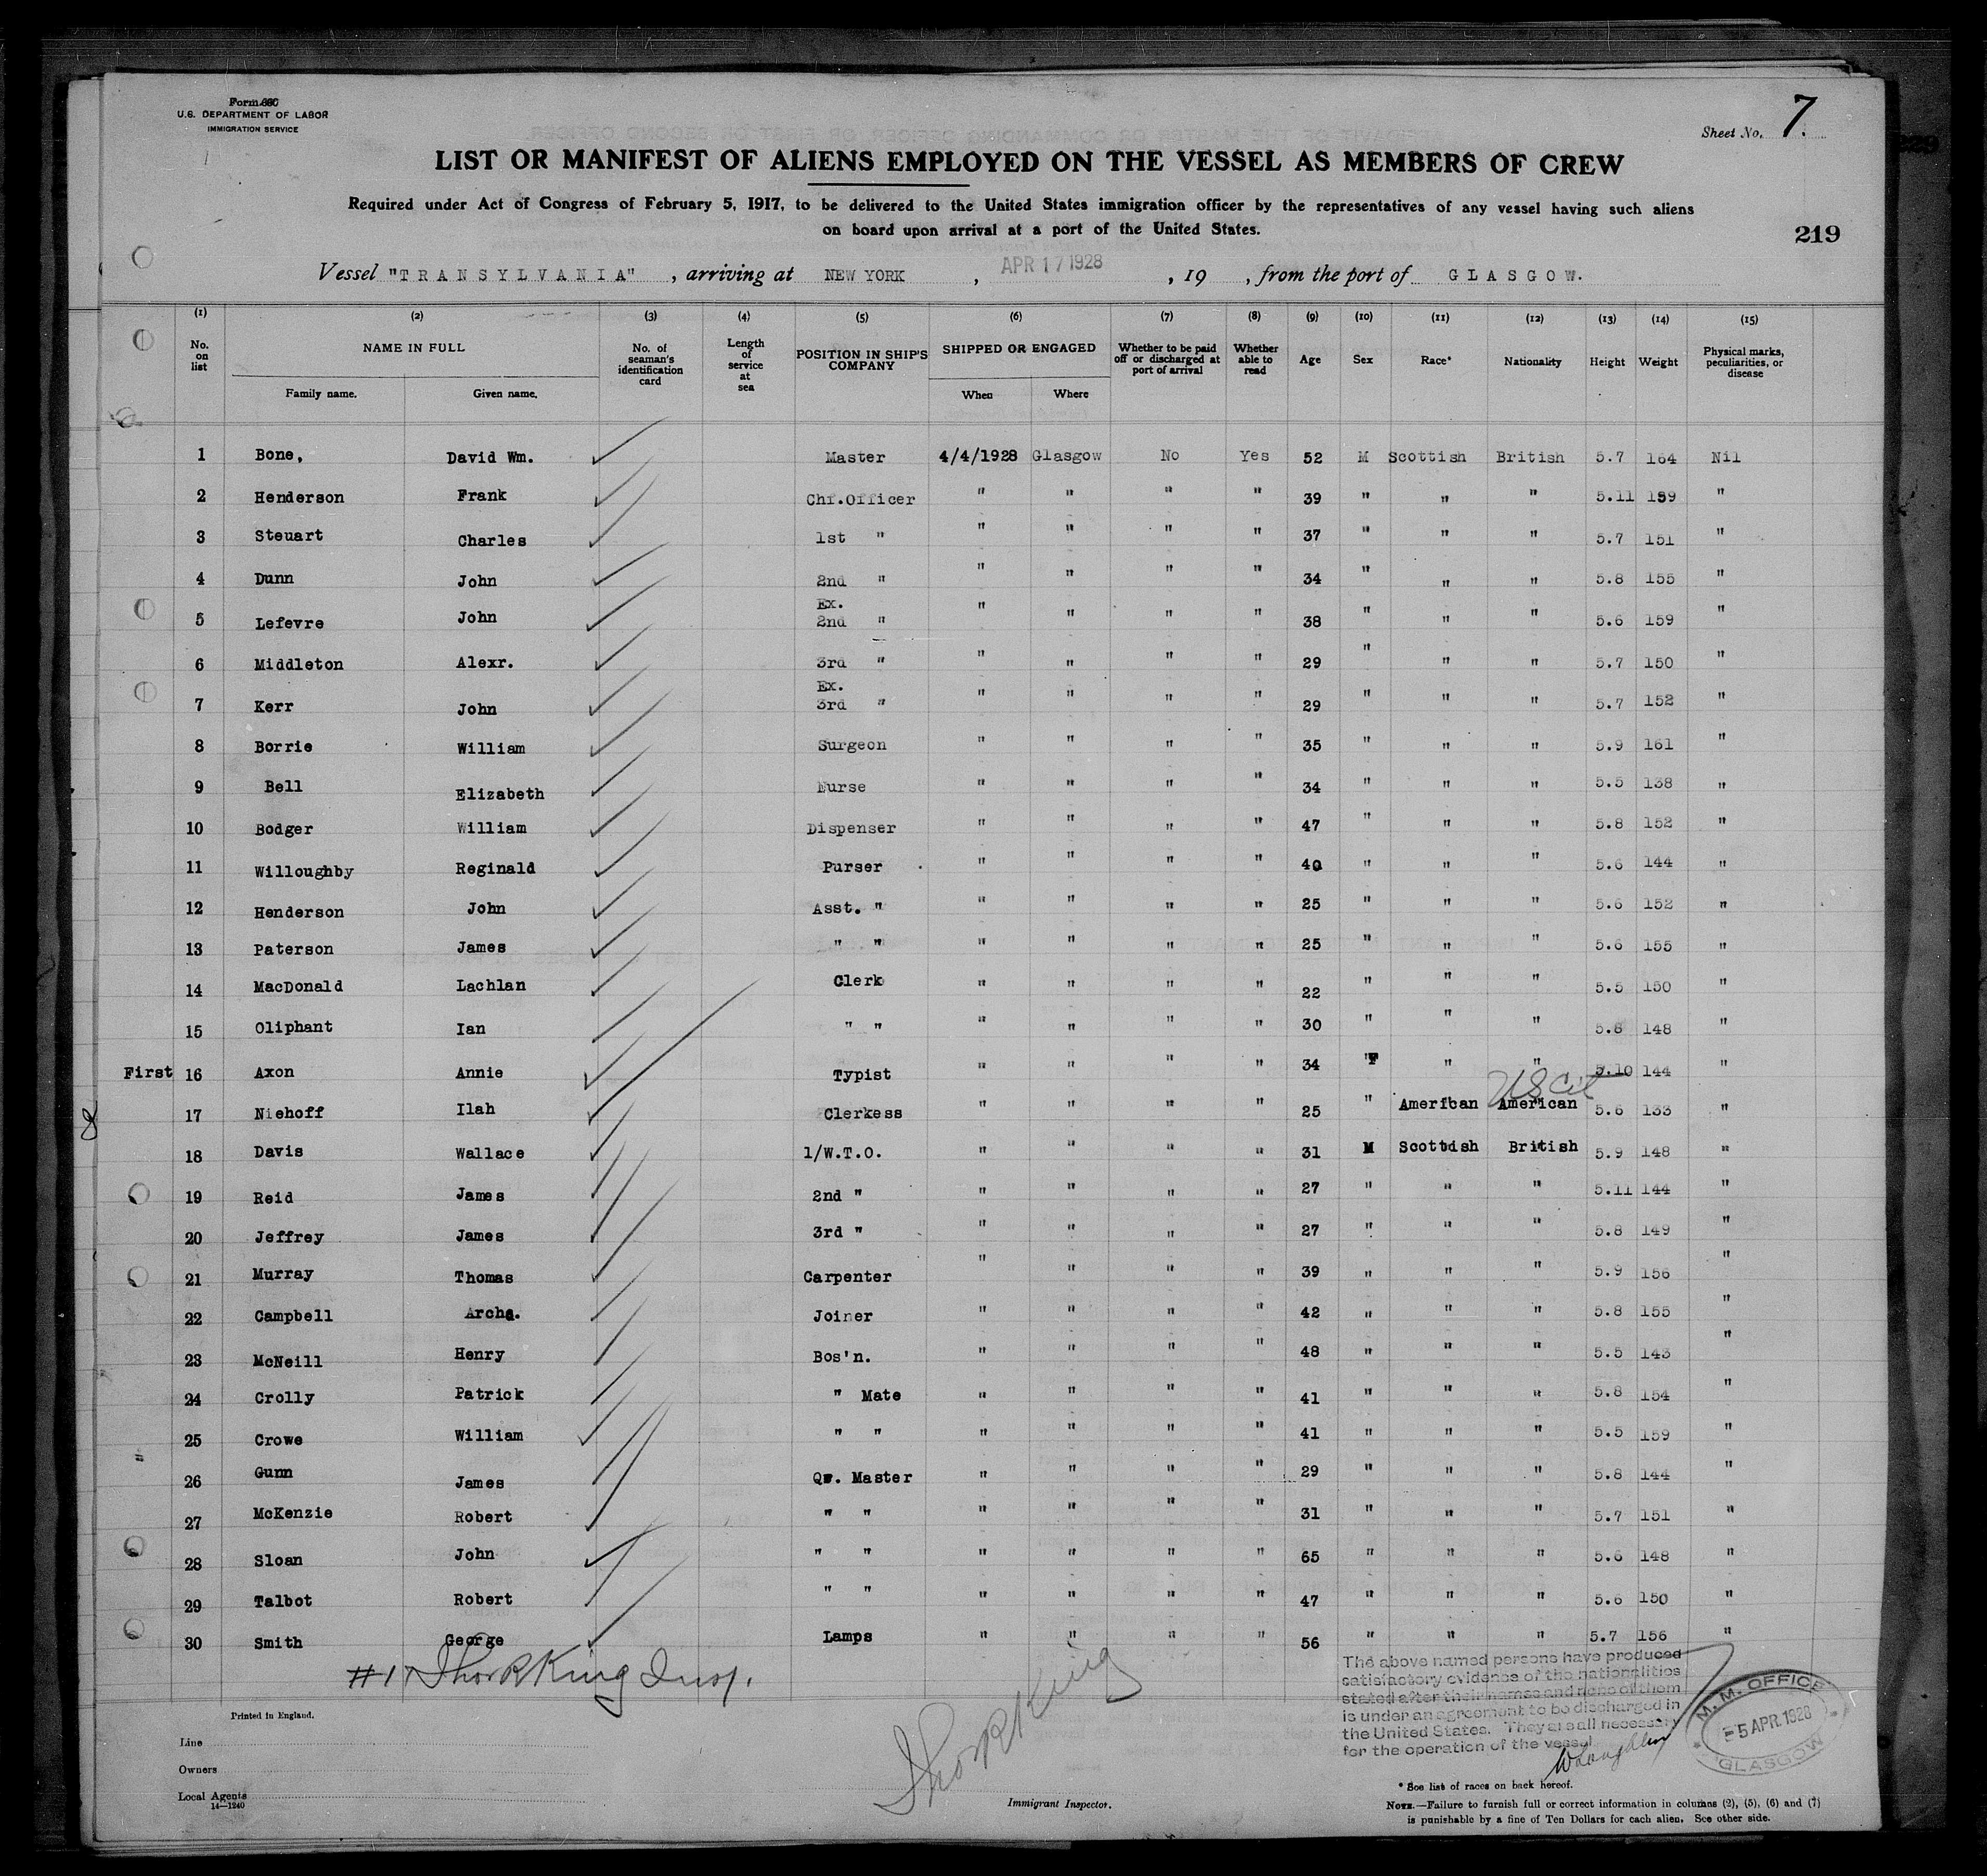 Form 680
U.S. DEPARTMENT OF LABOR
IMMIGRATION SERVICE
Sheet No. 7.
LIST OR MANIFEST OF ALIENS EMPLOYED ON THE VESSEL AS MEMBERS OF CREW
Required under Act of Congress of February 5, 1917, to be delivered to the United States immigration officer by the representatives of any vessel having such aliens
on board upon arrival at a port of the United States.
219
Vessel "TRANSYLVANIA", arriving at NEW YORK, APR 17 1928, 19 , from the port of GLASGOW.
(1) (2) (3) (4) (5) (6) (7) (8) (9) (10) (11) (12) (13) (14) (15)
No. on list NAME IN FULL Family name. Given name. No. of seaman's identification card Length of service at sea POSITION IN SHIP'S COMPANY SHIPPED OR ENGAGED When Where Whether to be paid off or discharged at port of arrival Whether able to read Age Sex Race* Nationality Height Weight Physical marks, peculiarities, or disease
1 Bone, David Wm. Master 4/4/1928 Glasgow No Yes 52 M Scottish British 5.7 164 Nil
2 Henderson Frank Chf.Officer " " " " 39 " " " 5.11 189 "
3 Steuart Charles 1st " " " " " 37 " " " 5.7 151 "
4 Dunn John 2nd " " " " " 34 " " " 5.8 155 "
5 Lefevre John Ex. 2nd " " " " " 38 " " " 5.6 159 "
6 Middleton Alexr. 3rd " " " " " 29 " " " 5.7 150 "
7 Kerr John Ex. 3rd " " " " " 29 " " " 5.7 152 "
8 Borrie William Surgeon " " " " 35 " " " 5.9 161 "
9 Bell Elizabeth Nurse " " " " 34 " " " 5.5 138 "
10 Bodger William Dispenser " " " " 47 " " " 5.8 152 "
11 Willoughby Reginald Purser " " " " 40 " " " 5.6 144 "
12 Henderson John Asst. " " " " " 25 " " " 5.6 152 "
13 Paterson James " " " " " " 25 " " " 5.6 155 "
14 MacDonald Lachlan Clerk " " " " 22 " " " 5.5 150 "
15 Oliphant Ian " " " " " " 30 " " " 5.8 148 "
First 16 Axon Annie Typist " " " " 34 "F " " 5.10 144 "
US Cit
8 17 Niehoff Ilah Clerkess " " " " 25 " American American 5.6 133 "
18 Davis Wallace 1/W.T.O. " " " " 31 M Scottish British 5.9 148 "
19 Reid James 2nd " " " " " 27 " " " 5.11 144 "
20 Jeffrey James 3rd " " " " " 27 " " " 5.8 149 "
21 Murray Thomas Carpenter " " " " 39 " " " 5.9 156 "
22 Campbell Archd. Joiner " " " " 42 " " " 5.8 155 "
23 McNeill Henry Bos'n. " " " " 48 " " " 5.5 143 "
24 Crolly Patrick " Mate " " " " 41 " " " 5.8 154 "
25 Crowe William " " " " " " 41 " " " 5.5 159 "
26 Gunn James Qr. Master " " " " 29 " " " 5.8 144 "
27 McKenzie Robert " " " " " " 31 " " " 5.7 151 "
28 Sloan John " " " " " " 65 " " " 5.6 148 "
29 Talbot Robert " " " " " " 47 " " " 5.6 150 "
30 Smith George Lamps " " " " 56 " " " 5.7 156 "
#17 Thor R King Insp.
Thor R King
The above named persons have produced
satisfactory evidence of the nationalities
stated after their names and none of them
is under an agreement to be discharged in
the United States. They are all necessary
for the operation of the vessel
M. M. OFFICE
5 APR. 1928
GLASGOW
Printed in England.
Line
Owners
Local Agents
14—1240
Immigrant Inspector.
* See list of races on back hereof.
NOTE.—Failure to furnish full or correct information in columns (2), (5), (6) and (7)
is punishable by a fine of Ten Dollars for each alien. See other side.